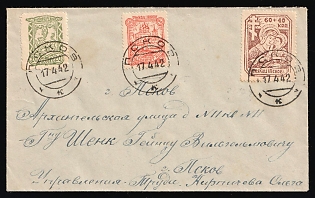 60+40
КОП
ПСКОВ
17.4.42
К
ПСКОВ
17.4.42
К
ПСКОВ
17.4.42
К
г. Псков
Архангельская улица д №11 кв №11
Г-ну Шенк Гейнцу Вильгельмовичу
Псков
Управление Труда, Кирпичева Олега